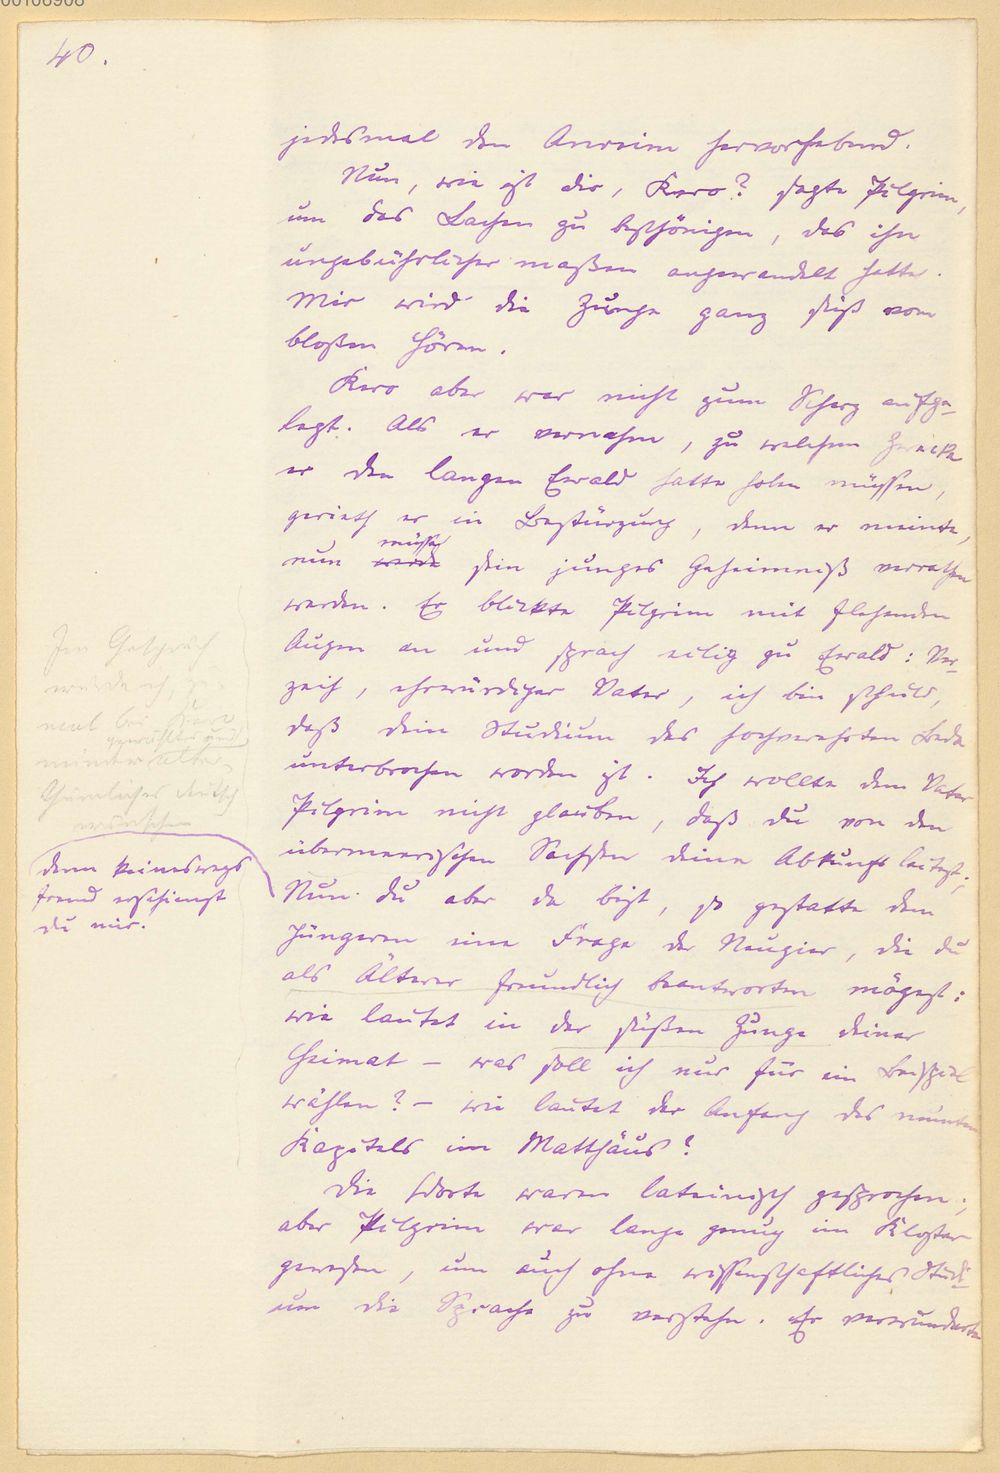 00106908
40.
jedesmal den Anreim hervorhebend.
Nun, wie ist dir, Kero? sagte Pilgrim,
um das Lachen zu beschönigen, das ihn
ungebührlicher maßen angewandelt hatte.
Mir wird die Zunge ganz süß vom
bloßen Hören.
Kero aber war nicht zum Scherz aufge-
legt. Als er vernahm, zu welchem Zwecke
er den langen Ewald hatte holen müssen,
gerieth er in Bestürzung, denn er meinte,
müsse
nun werde sein junges Geheimniß verrathen
werden. Er blickte Pilgrim mit flehenden
Augen an und sprach eilig zu Ewald: Ver-
zeih, ehrwürdiger Vater, ich bin schuld,
daß dein Studium des hochverehrten Beda
unterbrochen worden ist. Ich wollte dem Vater
Pilgrim nicht glauben, daß du von den
übermeerischen Sachsen deine Abkunft leitest;
Nun du aber da bist, so gestatte dem
Jüngeren eine Frage der Neugier, die du
als Älterer freundlich beantworten mögest:
wie lautet in der süßen Zunge deiner
Heimat – was soll ich nur für ein Beispiel
wählen? – wie lautet der Anfang des neunten
Kapitels im Matthäus?
Die Worte waren lateinisch gesprochen;
aber Pilgrim war lange genug im Kloster
gewesen, um auch ohne wissenschaftliches Studi-
um die Sprache zu verstehn. Er verwunderte
Im Gespräch
würde ich,
mal bei Kero
gewähltes und
minder alter-
thümliches Deutsch
wünschen
denn keineswegs
fremd erscheinst
du mir.